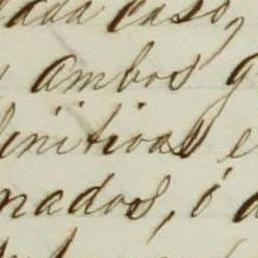 cada caso,
ambos
finitivas e
nados, ó